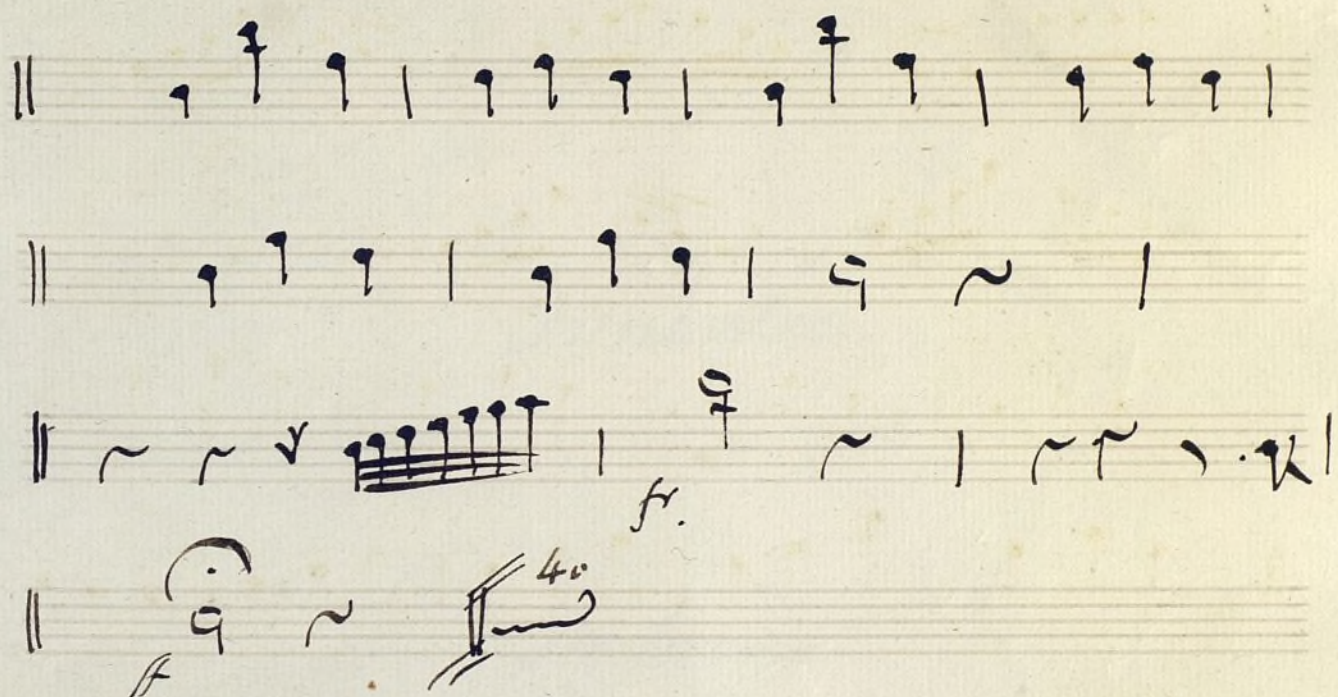 fr.
40
ff